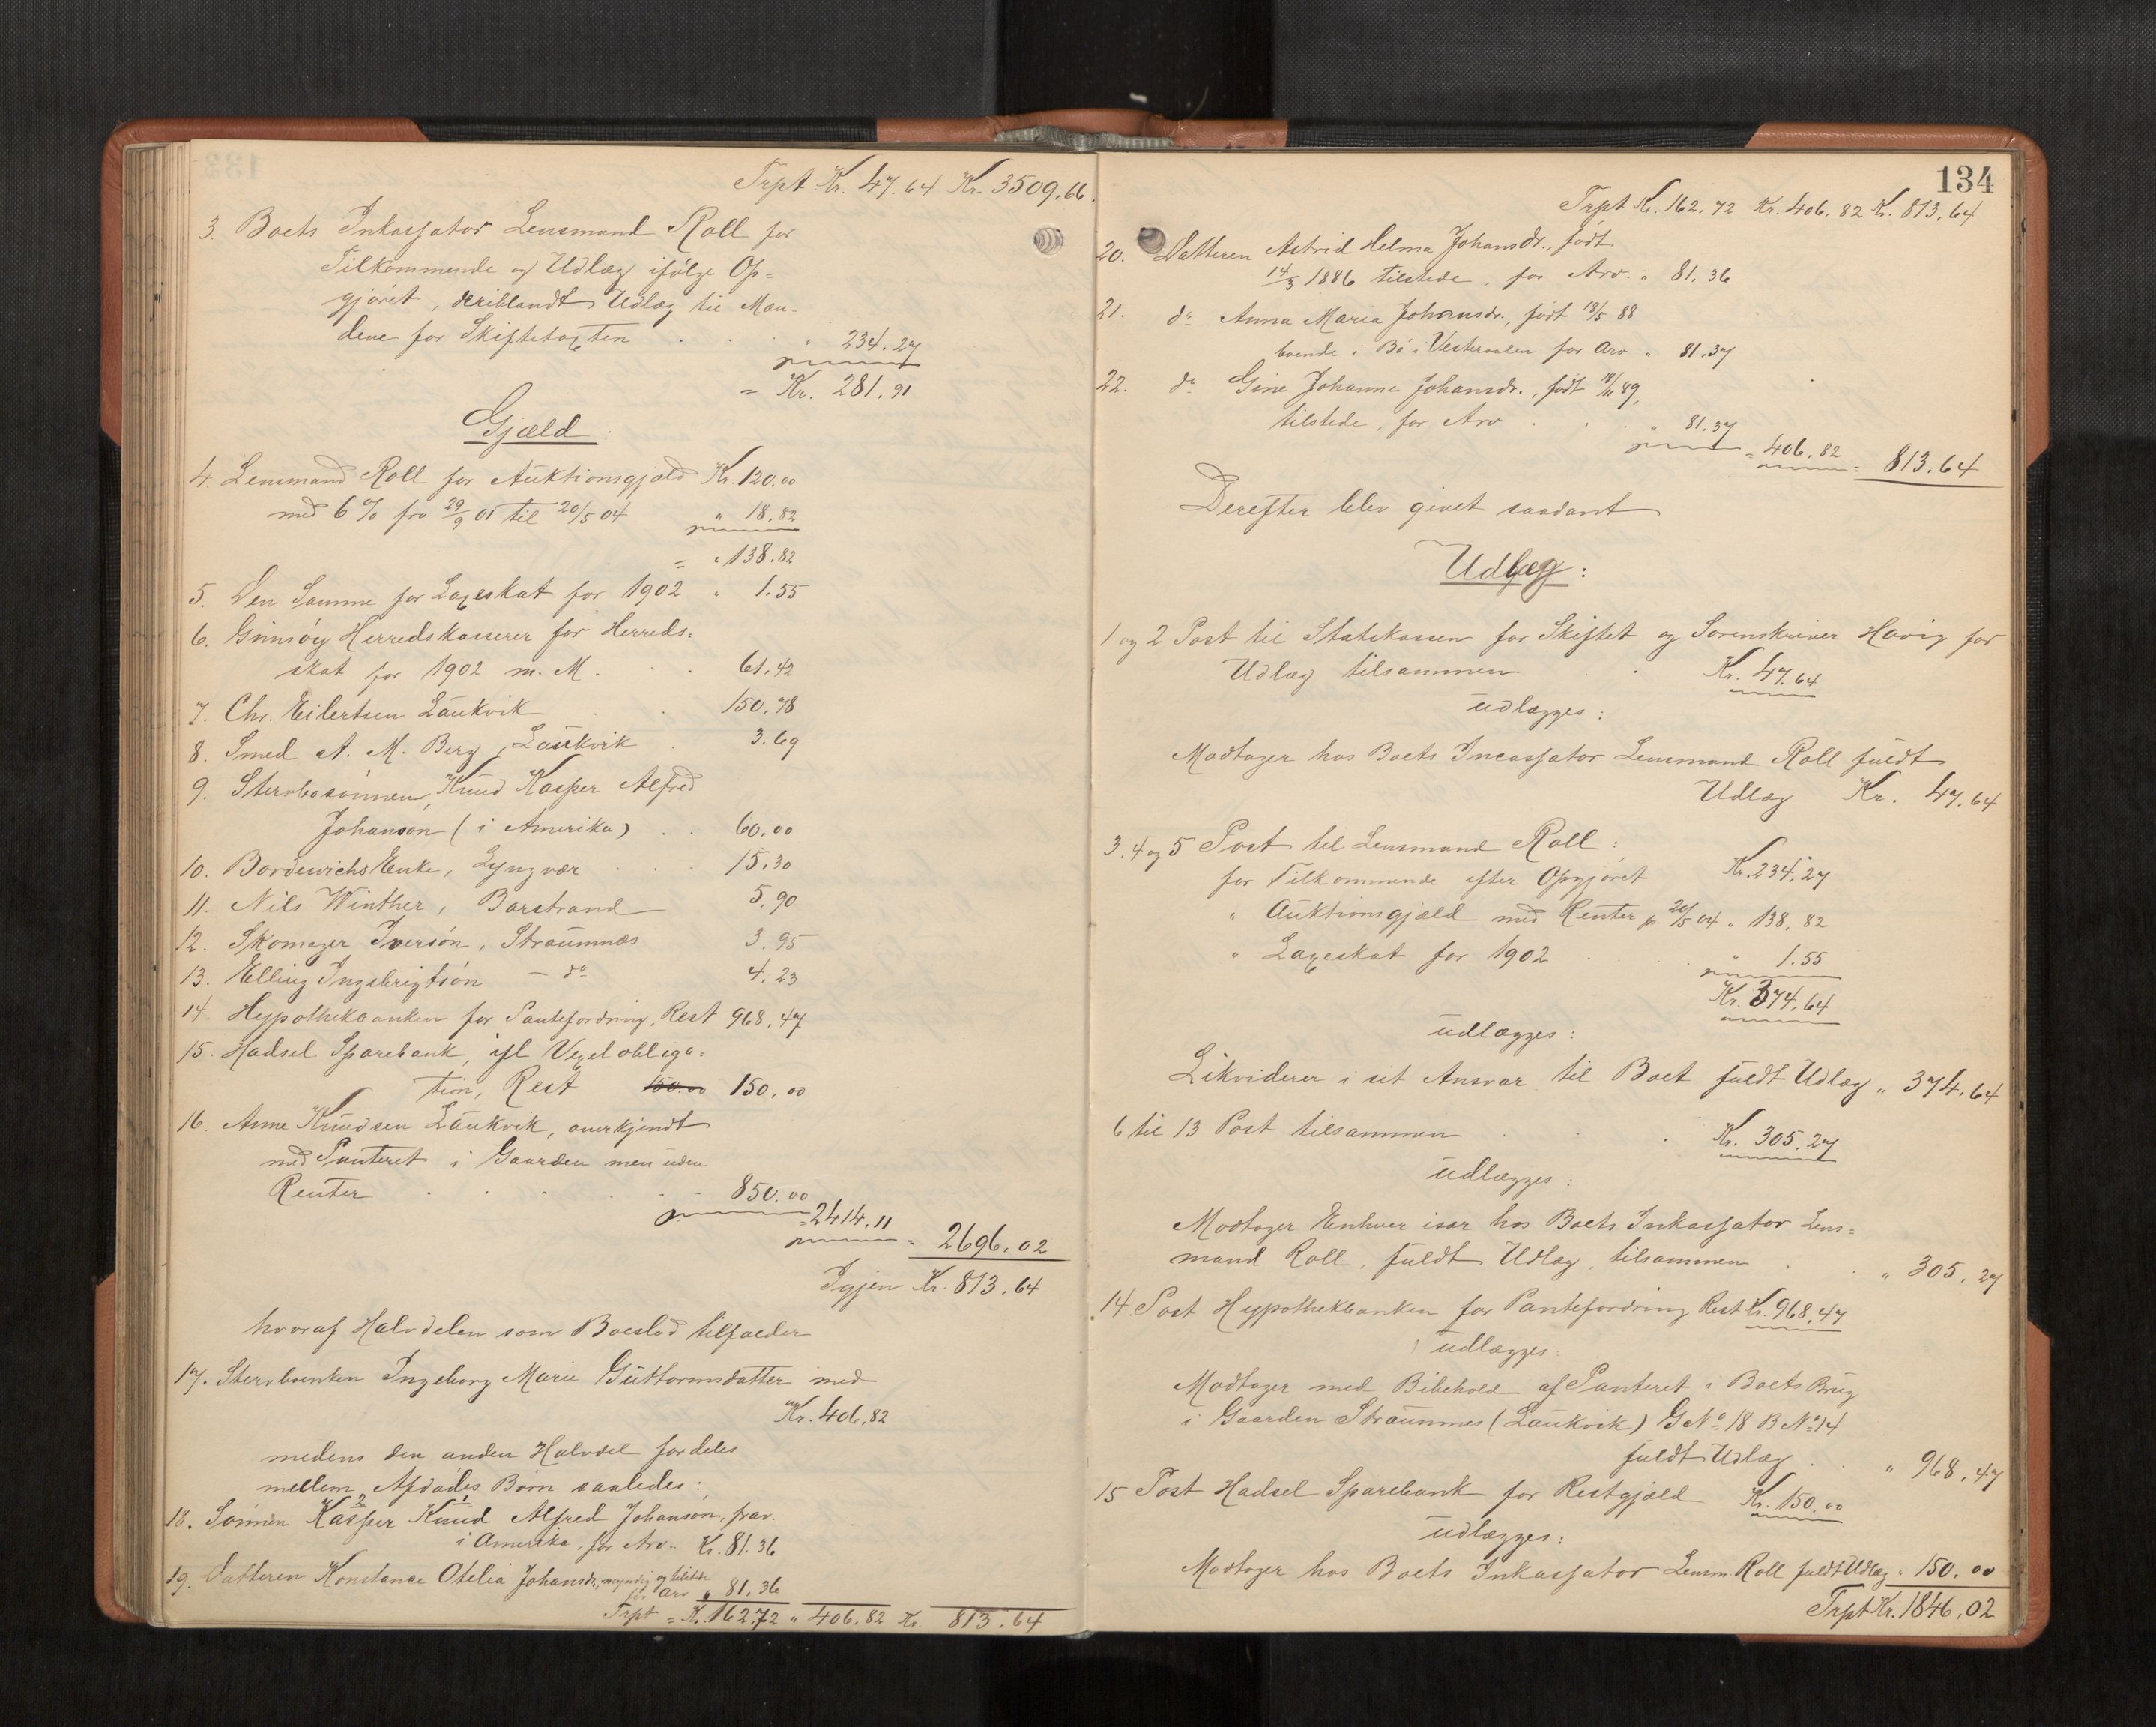 Trpt Kr. 47.64 Kr. 3509.66.
3. Boets Inkassator Lensmand Roll for
Tilkommende og Udlæg ifølge Op=
gjøret, deriblandt Udlæg til Mæn-
dene for Skiftetaxten . . . " 234.27
= Kr. 281.91
Gjæld:
4. Lensmand Roll for Auktionsgjæld Kr. 120.00
med 6 % fra 29/9 01 til 20/5 04 " 18.82
= " 138.82
5. Den Samme for Lægeskat for 1902 " 1.55
6. Gimsøy Herredskasserer for Herreds=
skat for 1902 m. M. . . 61.42
7. Chr. Eilertsen Laukvik . . 150.78
8. Smed A. M. Berg, Laukvik . 3.69
9. Stervbosønnen, Knud Kasper Alfred
Johanson (i Amerika) . . 60.00
10. Bordewichs Enke, Lyngvær . . . 15.30
11. Nils Winther, Barstrand 5.90
12. Skomager Iversøn, Straumnæs 3.95
13. Elling Ingebrigtsøn - do 4.23
14. Hypothekbanken for Pantefordring, Rest 968.47
15. Hadsel Sparebank, ifl Vexelobliga=
tion, Rest 150.00 150.00
16. Anne Knudsen Laukvik, anerkjendt
med Panteret i Gaarden men uden
Renter . . . . . 850.00
= 2414.11 = 2696.02
Igjen Kr. 813.64
hvoraf Halvdelen som Boeslod tilfalder
17. Stervboenken Ingeborg Marie Guttormsdatter med
Kr. 406.82
medens den anden Halvdel fordeles
mellem Afdødes Børn saaledes:
18. Sønnen Kasper 2 Knud 1 Alfred Johanson, frav.
i Amerika, for Arv. Kr. 81.36
19. Datteren Konstance Otelia Johansdr, myndig og tilstede
for Arv " 81.36
Trpt = Kr. 162.72 " 406.82 Kr. 813.64
134
Trpt Kr. 162.72 Kr. 406.82 Kr. 813.64
20. Datteren Astrid Helma Johansdr., født
14/3 1886 tilstede, for Arv. " 81.36
21. do Anna Maria Johansdr., født 18/5 88
boende i Bø i Vesteraalen for Arv " 81.37
22. do Gine Johanne Johansdr., født 18/11 89,
tilstede, for Arv . . . " 81.37
= 406.82 = 813.64
Derefter blev givet saadant
Udlæg:
1 og 2 Post til Statskassen for Skiftet og Sorenskriver Havig for
Udlæg tilsammen . Kr. 47.64
udlægges:
Modtager hos Boets Incassator Lensmand Roll fuldt
Udlæg Kr. 47.64
3. 4 og 5 Post til Lensmand Roll:
for Tilkommende efter Opgjøret Kr. 234.27
" Auktionsgjæld med Renter pr. 20/5 04 " 138.82
" Lægeskat for 1902 . . . " 1.55
Kr. 374.64
udlægges:
Likviderer i sit Ansvar til Boet fuldt Udlæg " 374.64
6 til 13 Post tilsammen . . . Kr. 305.27
udlægges:
Modtager Enhver især hos Boets Inkassator Lens=
mand Roll, fuldt Udlæg, tilsammen . . " 305.27
14. Post Hypothekbanken for Pantefordring Rest Kr. 968.47
udlægges:
Modtager med Bibehold af Panteret i Boets Brug
i Gaarden Straumnes (Laukvik) G No 18 B No 14
fuldt Udlæg . . " 968.47
15 Post Hadsel Sparebank for Restgjæld Kr. 150.00
udlægges:
Modtager hos Boets Inkassator Lensm. Roll fuldt Udlæg " 150.00
Trpt Kr. 1846.02